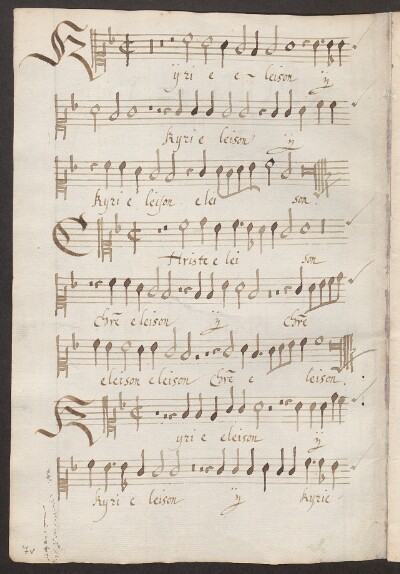 Kyrie e-leison ij
Kyrie leison ij
Kyrie leison elei son.
Christe elei son
Chr̃e eleison ij Chr̃e
eleison eleison Chr̃e e leison.
Kyrie eleison ij
Kyrie leison ij Kyrie
7v